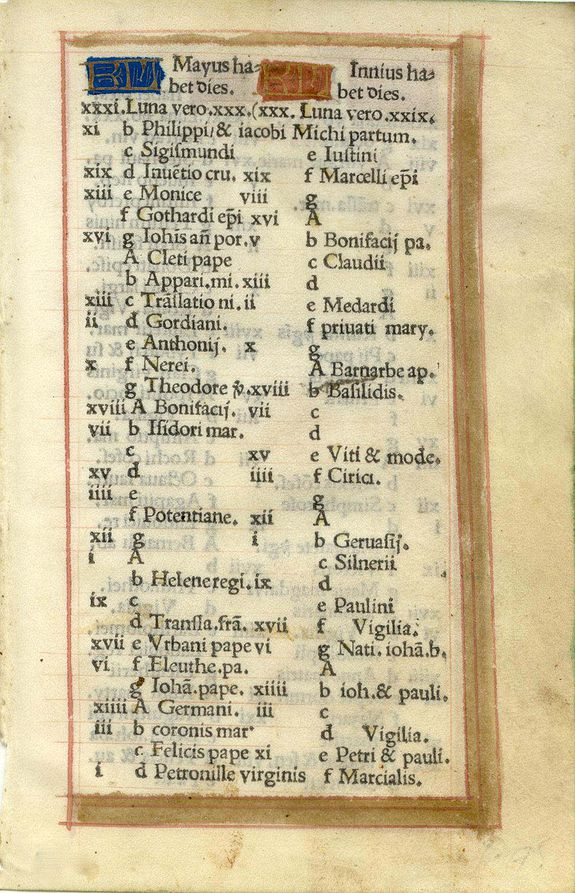 KL Mayus ha= KL Innius ha=
bet dies. bet dies.
xxxi. Luna vero.xxx. (xxx. Luna vero.xxix.
xi b Philippi/ & iacobi Michi partum.
c Sigismundi e Iustini
xix d Inuētio cru. xix f Marcelli ep̄i
xiii e Monice viii g
f Gothardi ep̄i xvi A
xvi g Iohis an̄ por. v b Bonifacij pa.
A Cleti pape c Claudii
b Appari.mi. xiii d
xiii c Trāslatio ni. ii e Medardi
ii d Gordiani. f priuati mary.
e Anthonij. x g
x f Nerei. A Barnarbe ap.
g Theodore v̄. xviii b Basilidis.
xviii A Bonifacij. vii c
vii b Isidori mar. d
c xv e Viti & mode.
xv d iiii f Cirici.
iiii e g
f Potentiane. xii A
xii g i b Geruasij.
i A c Silnerii
b Helene regi. ix d
ix c e Paulini
d Transla.frā. xvii f Vigilia.
xvii e Vrbani pape vi g Nati. iohā.b.
vi f Eleuthe.pa. A
g Iohā.pape. xiiii b ioh.& pauli.
xiiii A Germani. iii c
iii b coronis mar d Vigilia.
c Felicis pape xi e Petri & pauli.
i d Petronille virginis f Marcialis.